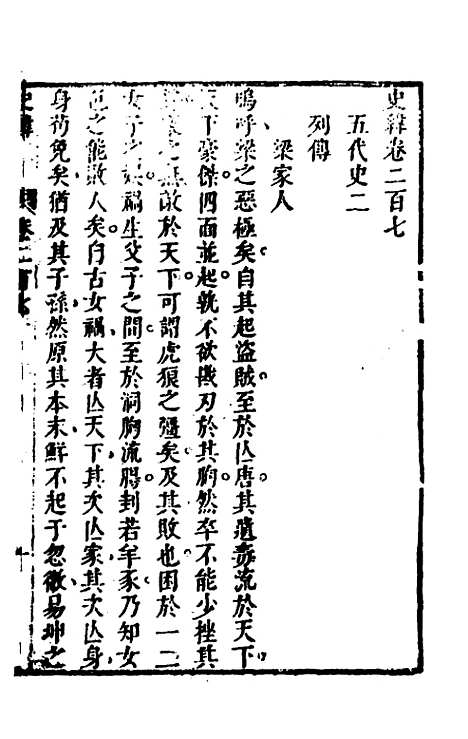 史繹卷二百七
五代史二
列傳
梁家人
嗚呼梁之惡極矣自其起盜賊至於亾唐其遺毒流於天下
天下豪傑四面並起孰不欲戡刃於其胸然卒不能少挫其
之無敵於天下可謂虎狼之彊矣及其敗也因於一二
女子之娛禍生父子之間至於洞胸流腸刲若羊豕乃知女
色之能敗人矣自古女禍大者亾天下其次亾家其次亾身
身苟免矣猶及其子孫然原其本末鮮不起于忽微易坤之
卷二百七